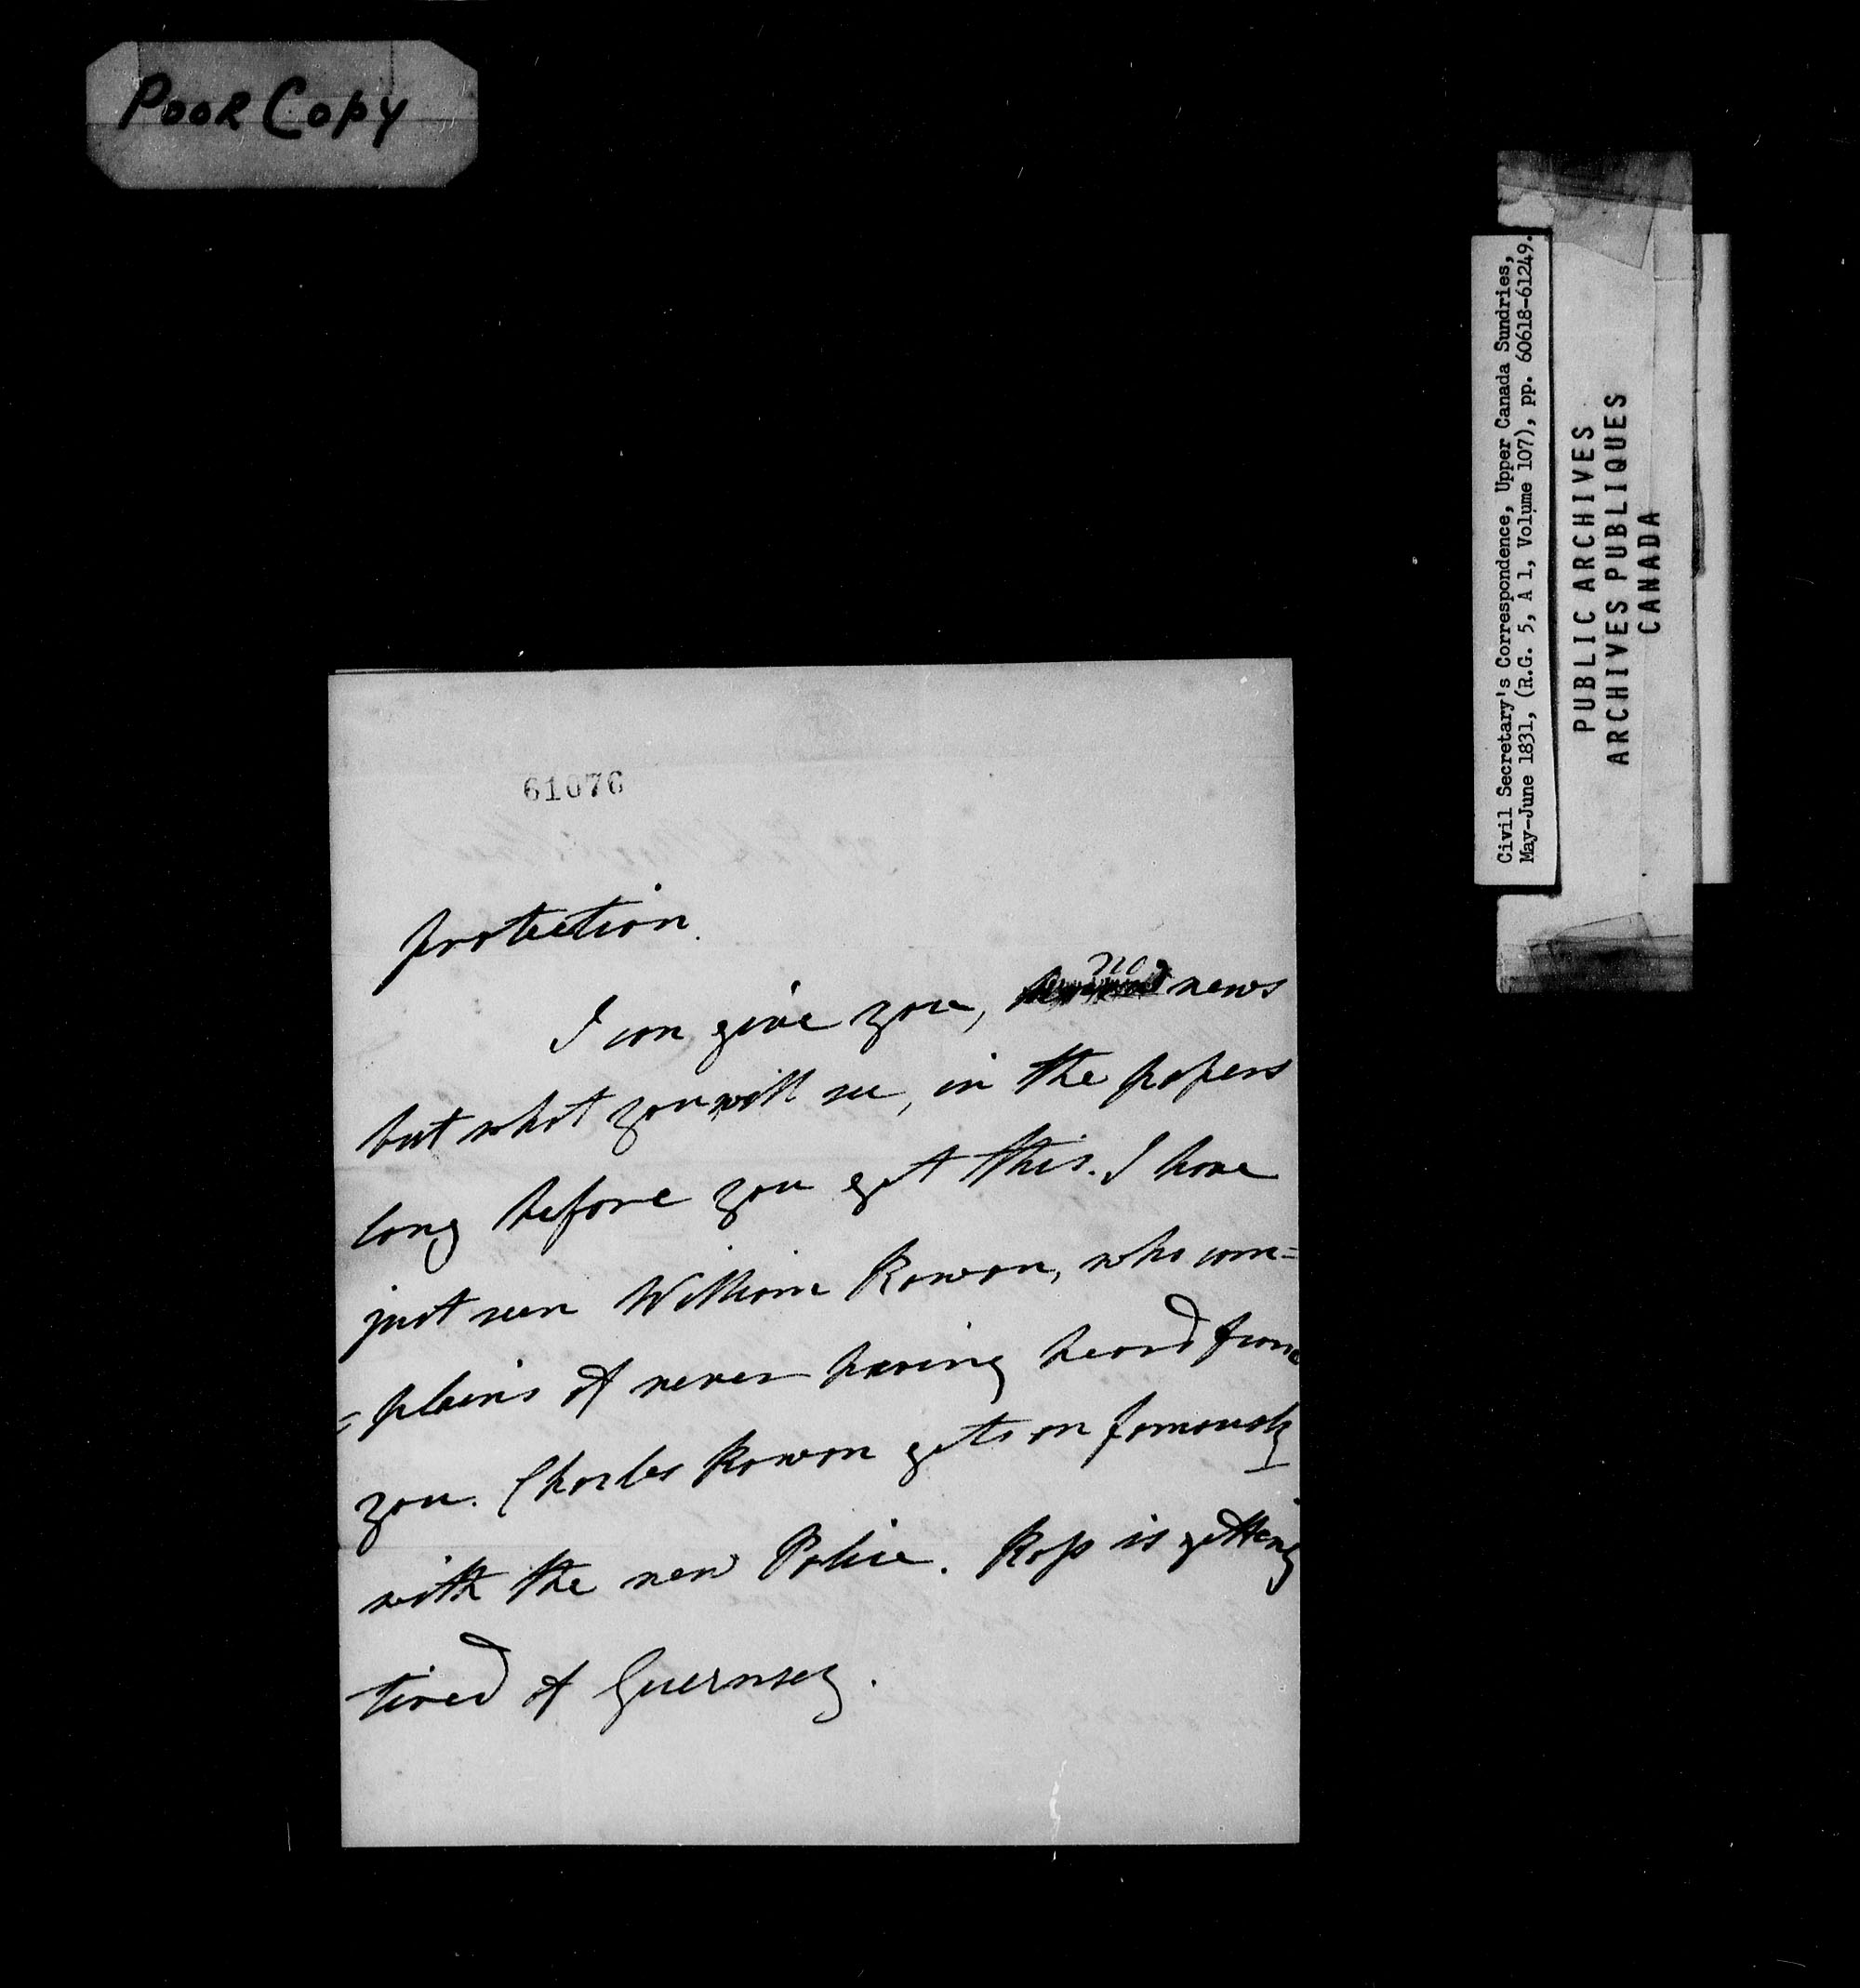 Poor Copy
Civil Secretary's Correspondence, Upper Canada Sundries,
May-June 1831, (R.G. 5, A 1, Volume 107), pp. 60618-61249.
PUBLIC ARCHIVES
ARCHIVES PUBLIQUES
CANADA
61076
protection.
I can give you, no news
but what you will see, in the papers
long before you get this. I have
just seen William Rowan, who com=
=plains of never having heard from
you. Charles Rowan gets on famously
with the new Police. Ross is getting
tired of Guernsey.